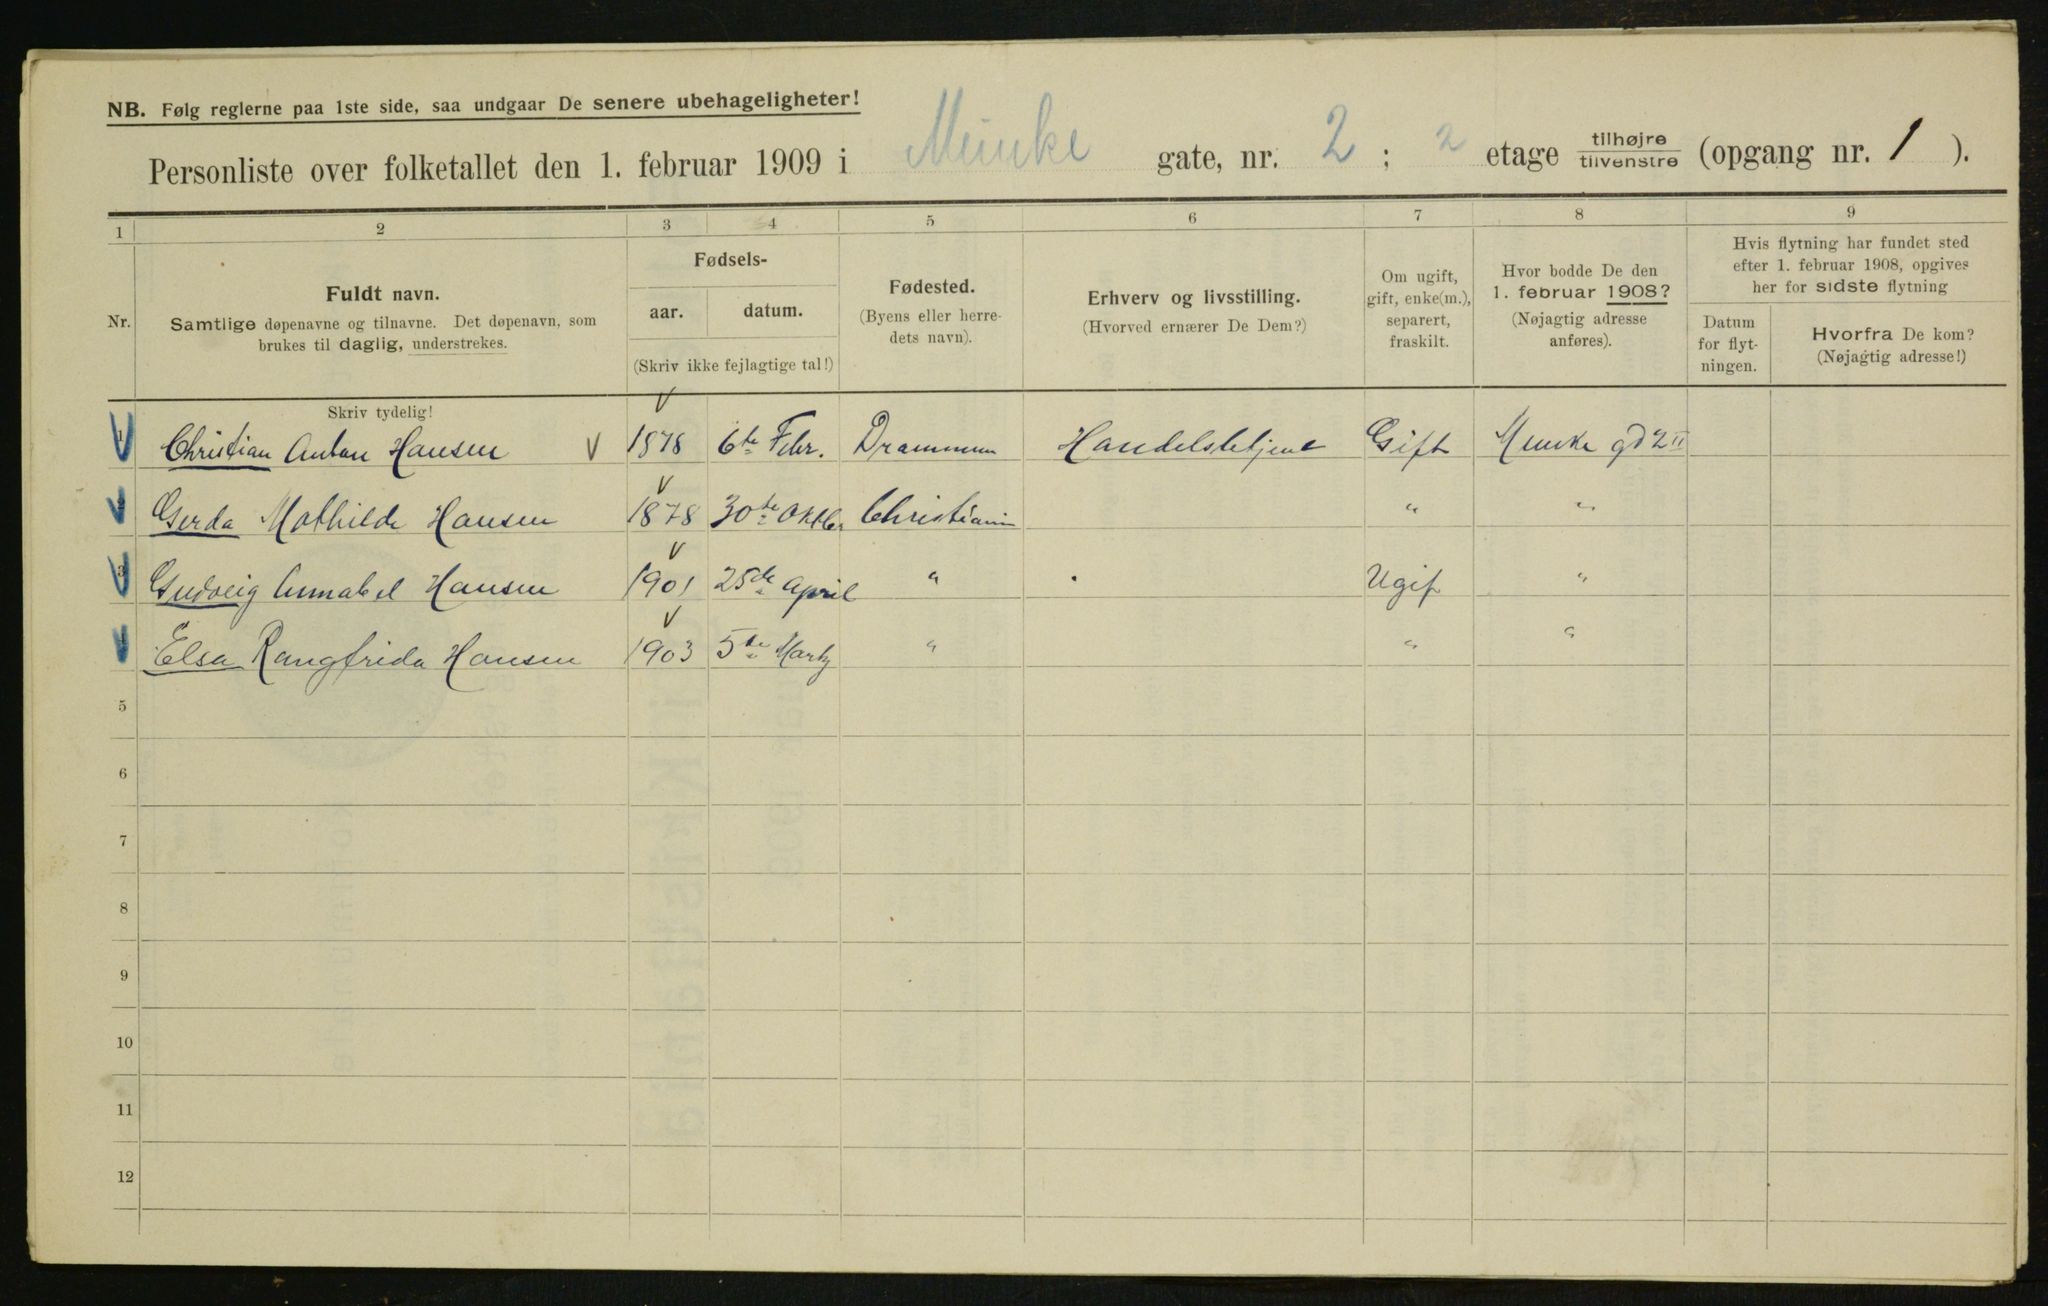 NB. Følg reglerne paa 1ste side, saa undgaar De senere ubehageligheter!
Personliste over folketallet den 1. februar 1909 i Munke gate, nr. 2 ; 2 etage tilhøjre tilvenstre (opgang nr. 1 ).
1 2 3 4 5 6 7 8 9
Nr.
Fuldt navn.
Samtlige døpenavne og tilnavne. Det døpenavn, som
brukes til daglig, understrekes.
Fødsels-
aar. datum.
(Skriv ikke fejlagtige tal!)
Fødested.
(Byens eller herre-
dets navn).
Erhverv og livsstilling.
(Hvorved ernærer De Dem?)
Om ugift,
gift, enke(m.),
separert,
fraskilt.
Hvor bodde De den
1. februar 1908?
(Nøjagtig adresse
anføres).
Hvis flytning har fundet sted
efter 1. februar 1908, opgives
her for sidste flytning
Datum
for flyt-
ningen.
Hvorfra De kom?
(Nøjagtig adresse!)
Skriv tydelig!
1 Christian Anton Hansen V 1878 6te Febr. Drammen Handelsbetjent Gift Munke gd 2 II
2 Gerda Mathilde Hansen 1878 30te Oktbr Christiania " "
3 Gudveig Annabel Hansen 1901 25de April " Ugif "
4 Elsa Rangfrida Hansen 1903 5te Marts " " "
5
6
7
8
9
10
11
12